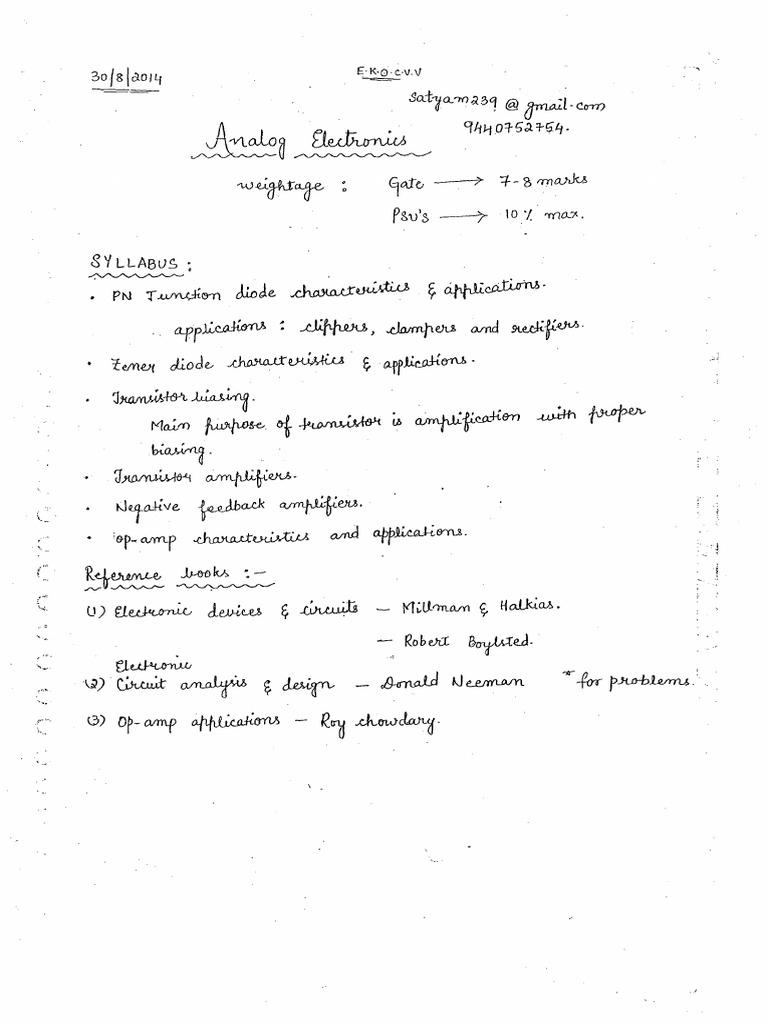 30/8/2014
E.K.O.C.V.V
satyam239@gmail.com
9440752754.
Analog Electronics
weightage : Gate → 7-8 marks
PSU's → 10% max.
SYLLABUS :
• PN Junction diode characteristics & applications.
applications : clippers, clampers and rectifiers.
• Zener diode characteristics & applications.
• Transistor biasing.
Main purpose of transistor is amplification with proper
biasing.
• Transistor amplifiers.
• Negative feedback amplifiers.
• op-amp characteristics and applications.
Reference books :-
(1) Electronic devices & circuits - Millman & Halkias.
- Robert Boylsted.
Electronic
(2) Circuit analysis & design - Donald Neeman * for problems.
(3) Op-amp applications - Roy chowdary.